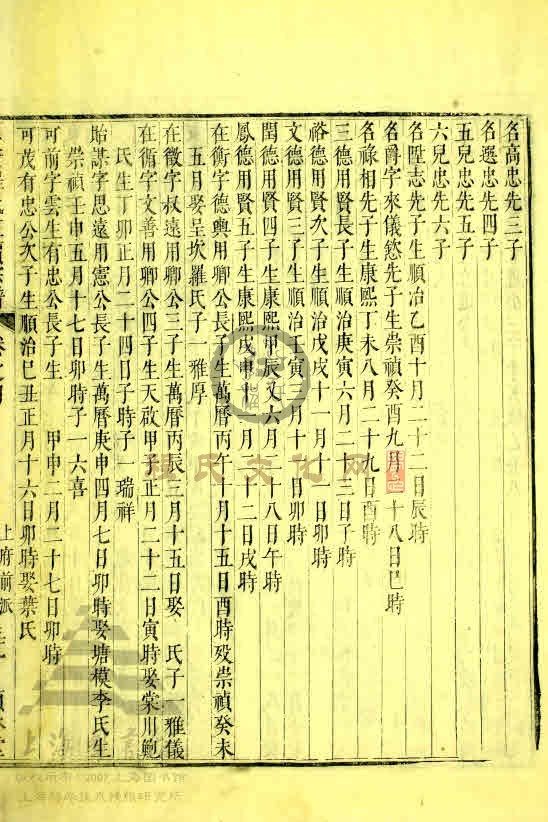 名高忠先三子
名選忠先四子
五兒忠先五子
六兒忠先六子
名陞志先子生順治乙酉十月二十二日辰時
名爵字來儀慾先子生崇禎癸酉九月二十八日巳時
名祿相先子生康熙丁未八月二十九日酉時
三德用賢長子生順治庚寅六月二十三日子時
裕德用賢次子生順治戊戌十一月十一日卯時
文德用賢三子生順治壬寅三月十 日卯時
閏德用賢四子生康熙甲辰又六月二十八日午時
鳳德用賢五子生康熙戊申十一月二十二日戌時
在衡字德輿用卿公長子生萬曆丙午十月十五日酉時歿崇禎癸未
五月娶呈坎羅氏子一雅厚
在徵字叔遠用卿公三子生萬曆丙辰三月十五日娶 氏子一雅儀
在衕字文善用卿公四子生天啟甲子正月二十二日寅時娶棠川鮑
氏生丁卯正月二十四日子時子一瑞祥
貽謀字思遠用憲公長子生萬曆庚申四月七日卯時娶塘模李氏生
崇禎壬申五月十七日卯時子一六喜
可前字雲生有忠公長子生 甲申二月二十七日卯時
可茂有忠公次子生順治己丑正月十六日卯時娶葉氏
上府前派
程氏文化网
上海圖書館